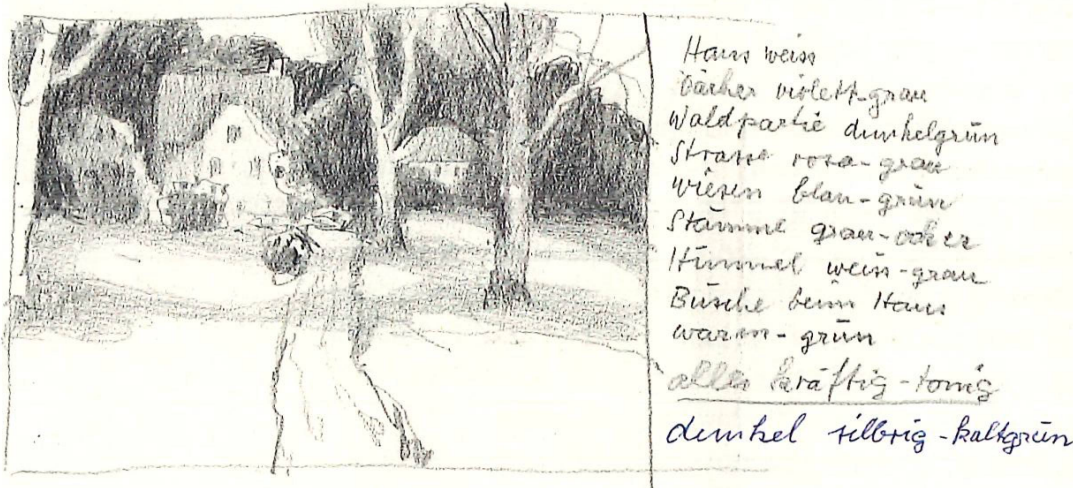 Haus weiss
Dächer violett-grau
Waldpartie dunkelgrün
Strasse rosa-grau
wiesen blau-grün
Stämme grau-ocker
Himmel weiss-grau
Büsche beim Haus
warm-grün
alles kräftig-tonig
dunkel silbrig-kaltgrün